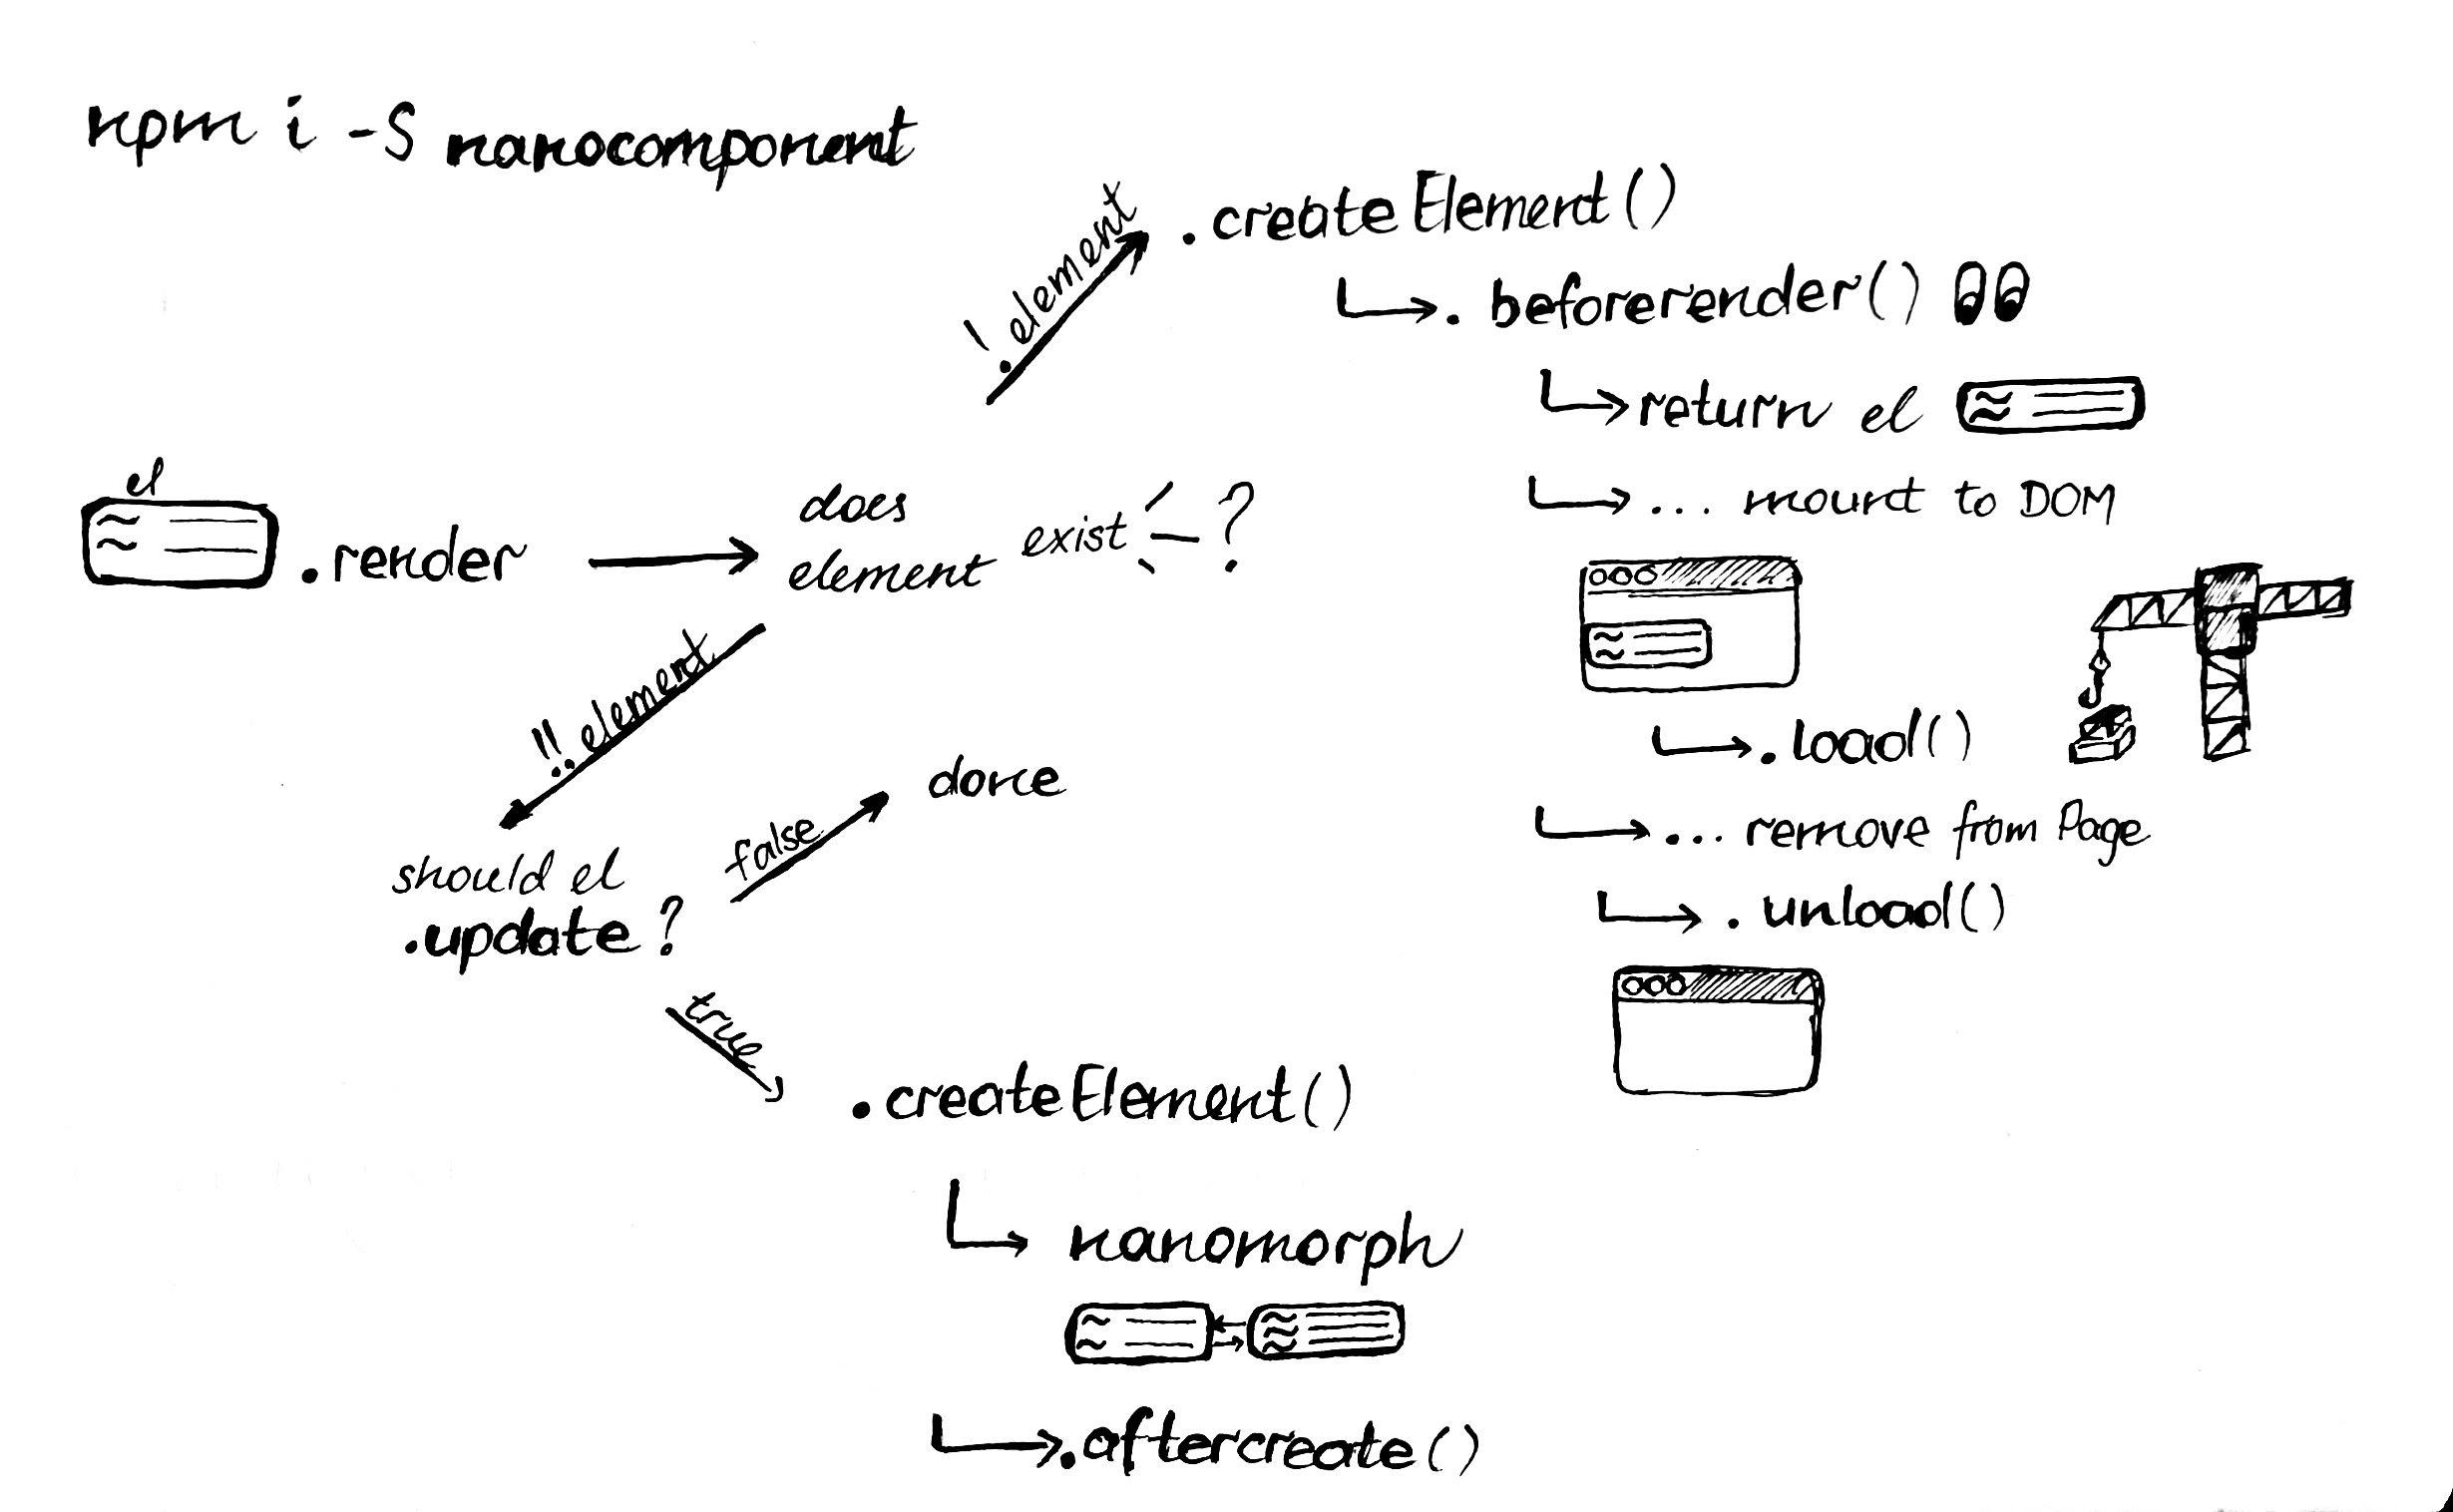 npm i -S nanocomponent
!element
.createElement()
.beforerender()
return el
... mount to DOM
el
.render
does
element exist ?
!!element
.load()
... remove from Page
.unload()
should el
.update?
false
done
true
.createElement()
nanomorph
.aftercreate()